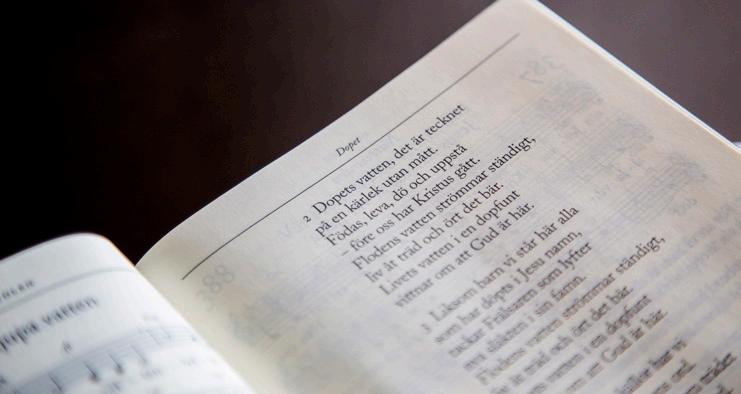 jupa vatten
Dopet
2 Dopets vatten, det är tecknet
på en kärlek utan mått.
Födas, leva, dö och uppstå
– före oss har Kristus gått.
Flodens vatten strömmar ständigt,
liv åt träd och ört det bär.
Livets vatten i en dopfunt
vittnar om att Gud är här.
3 Liksom barn vi står här alla
som har döpts i Jesu namn,
tackar Frälsaren som lyfter
nya släkten i sin famn.
Flodens vatten strömmar ständigt,
liv åt träd och ört det bär.
Livets vatten i en dopfunt
om att Gud är här.
har vi
ord.
trädet
388
387